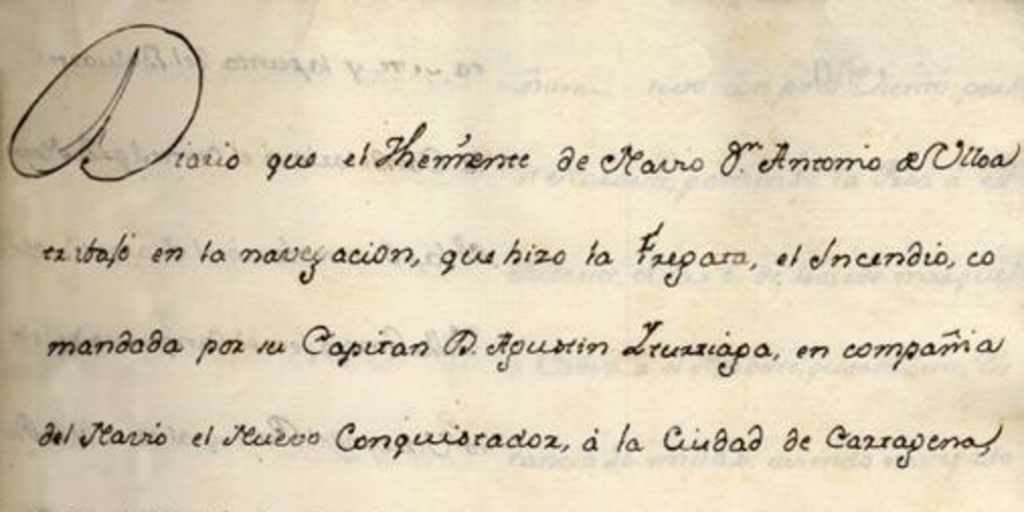 Diario que el Thenïente de Navio Dn. Antonio de Ulloa
trabajó en la navegacion, que hizo la Fregata, el Incendio, co
mandada por su Capitan D. Agustin Iturriaga, en compañia
del Navio el Nuevo Conquistador, á la Ciudad de Cartagena,